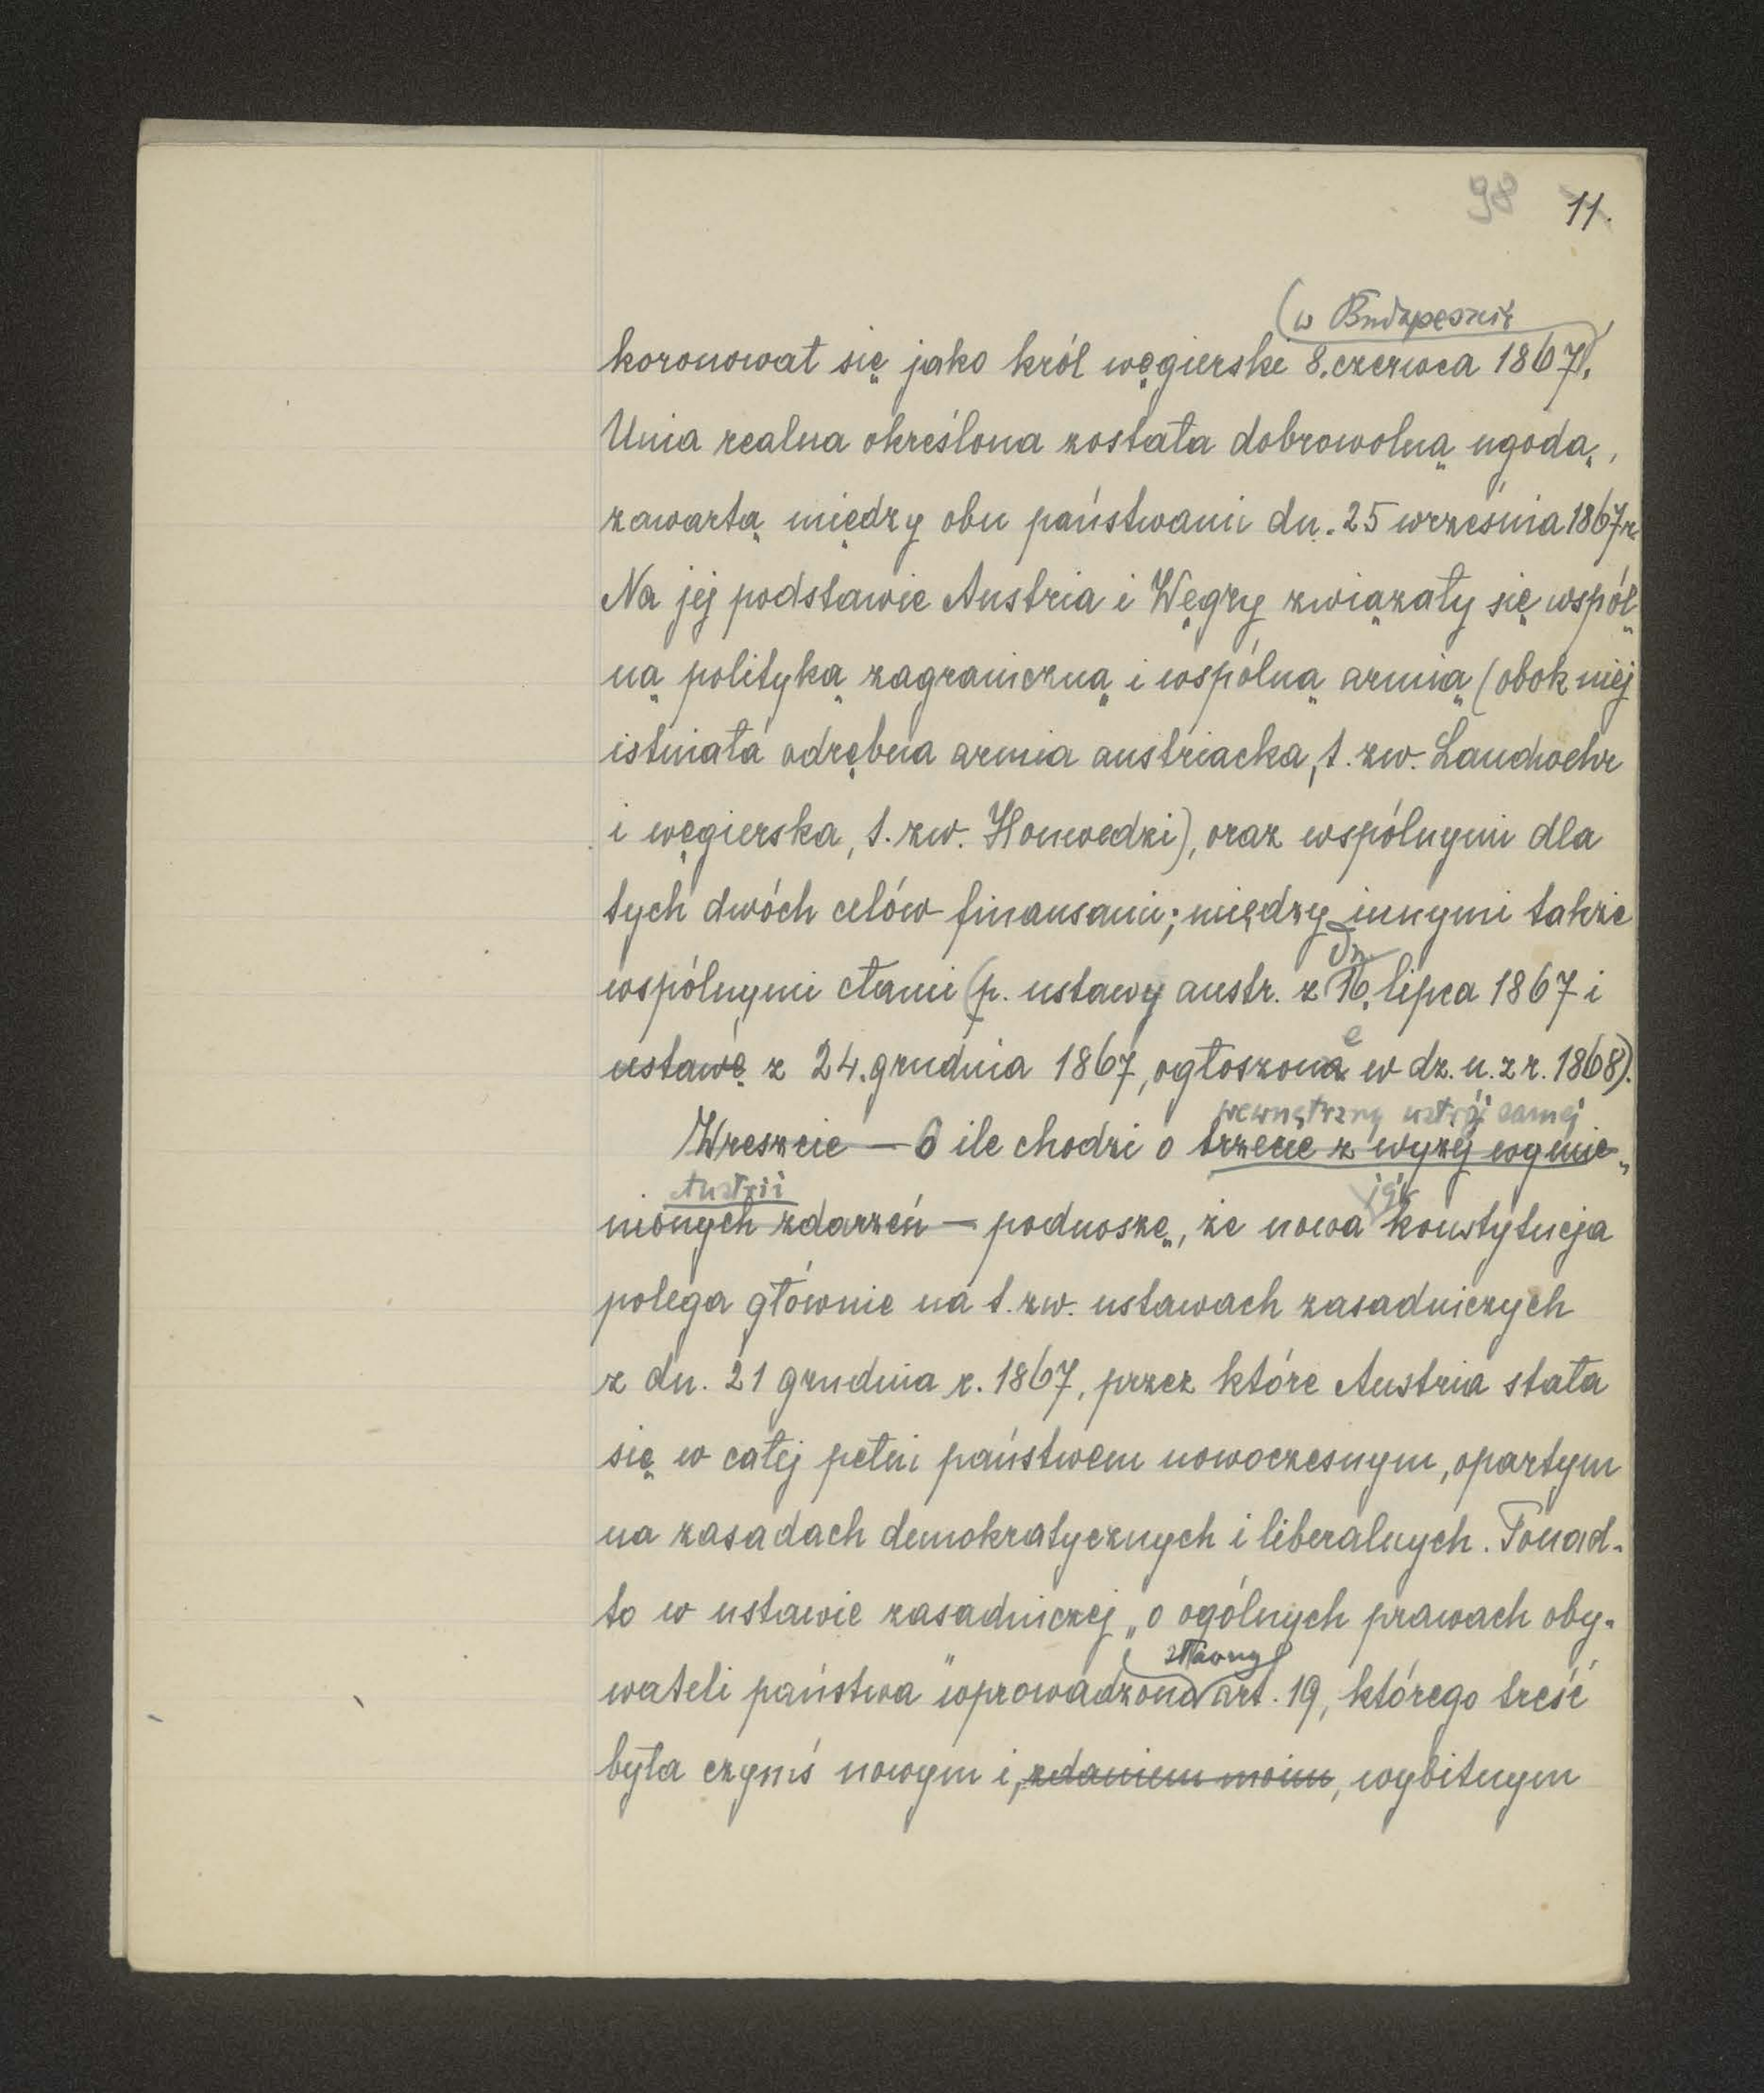 98 11.
(w Budapeszcie
koronował się jako król węgierski 8. czerwca 1867).
Unia realna określona została dobrowolną ugodą,
zawartą między obu państwami dn. 25 września 1867 r.
Na jej podstawie Austria i Węgry związały się wspól-
ną polityką zagraniczną i wspólną armią (obok niej
istniała odrębna armia austriacka, t. zw. Landwehr
i węgierska, t. zw. Honwedzi), oraz wspólnymi dla
tych dwóch celów finansami; między innymi także
dn.
wspólnymi cłami (p. ustawy austr. z 16. lipca 1867 i
e
ustawę z 24. grudnia 1867, ogłoszona w dz. u. z r. 1868).
wewnętrzny ustrój samej
Wreszcie — O ile chodzi o trzecie z wyżej wymie-
Austrii jej
nionych zdarzeń — podnoszę, że nowa konstytucja
polega głównie na t. zw. ustawach zasadniczych
z dn. 21 grudnia r. 1867, przez które Austria stała
się w całej pełni państwem nowoczesnym, opartym
na zasadach demokratycznych i liberalnych. Ponad-
to w ustawie zasadniczej „o ogólnych prawach oby-
sławny
wateli państwa" wprowadzono art. 19, którego treść
była czymś nowym i, zdaniem moim, wybitnym